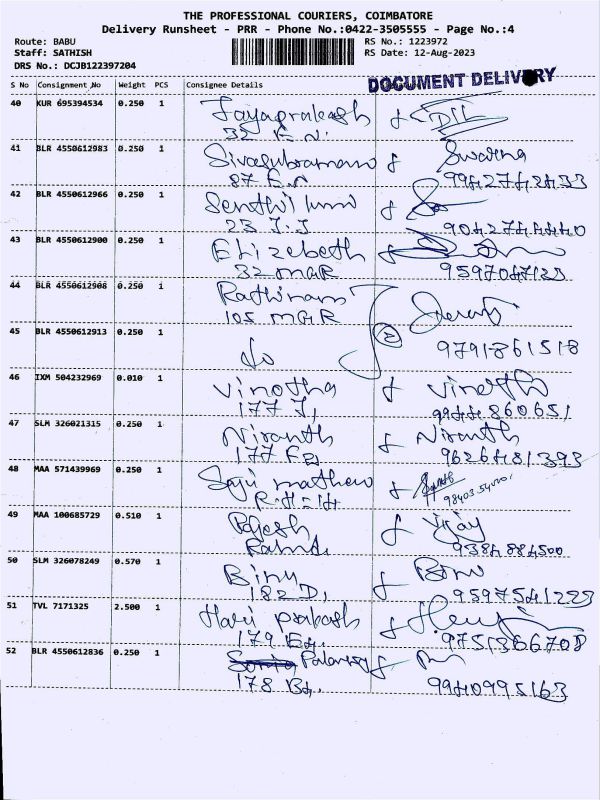 THE PROFESSIONAL COURIERS, COIMBATORE
Delivery Runsheet - PRR - Phone No.:0422-3505555 - Page No.:4
Route: BABU RS No.: 1223972
Staff: SATHISH RS Date: 12-Aug-2023
DRS No.: DCJB122397204
DOCUMENT DELIVERY
S No Consignment No Weight PCS Consignee Details
40 KUR 695394534 0.250 1 Jayaprakash
32
41 BLR 4550612983 0.250 1 Sivasubramani & Swarna
87 9942742433
42 BLR 4550612966 0.250 1 Senthil &
23 J.J 9042744440
43 BLR 4550612900 0.250 1 Elizebeth
32 MGR 9597047123
44 BLR 4550612908 0.250 1 Rathinam
105 MGR
45 BLR 4550612913 0.250 1 do 2 9791861518
46 IXM 504232969 0.010 1 Vinotha & Vinotha
177 J, 9944860651
47 SLM 326021315 0.250 1 Niranth & Niranth
177 9626481393
48 MAA 571439969 0.250 1 Saju mathew &
49 MAA 100685729 0.510 1 Rajesh & Vijay
9384884500
50 SLM 326078249 0.570 1 Binu &
182 D, 9597541223
51 TVL 7171325 2.500 1 Hari prakash &
179 9751366708
52 BLR 4550612836 0.250 1 &
178 9940995163